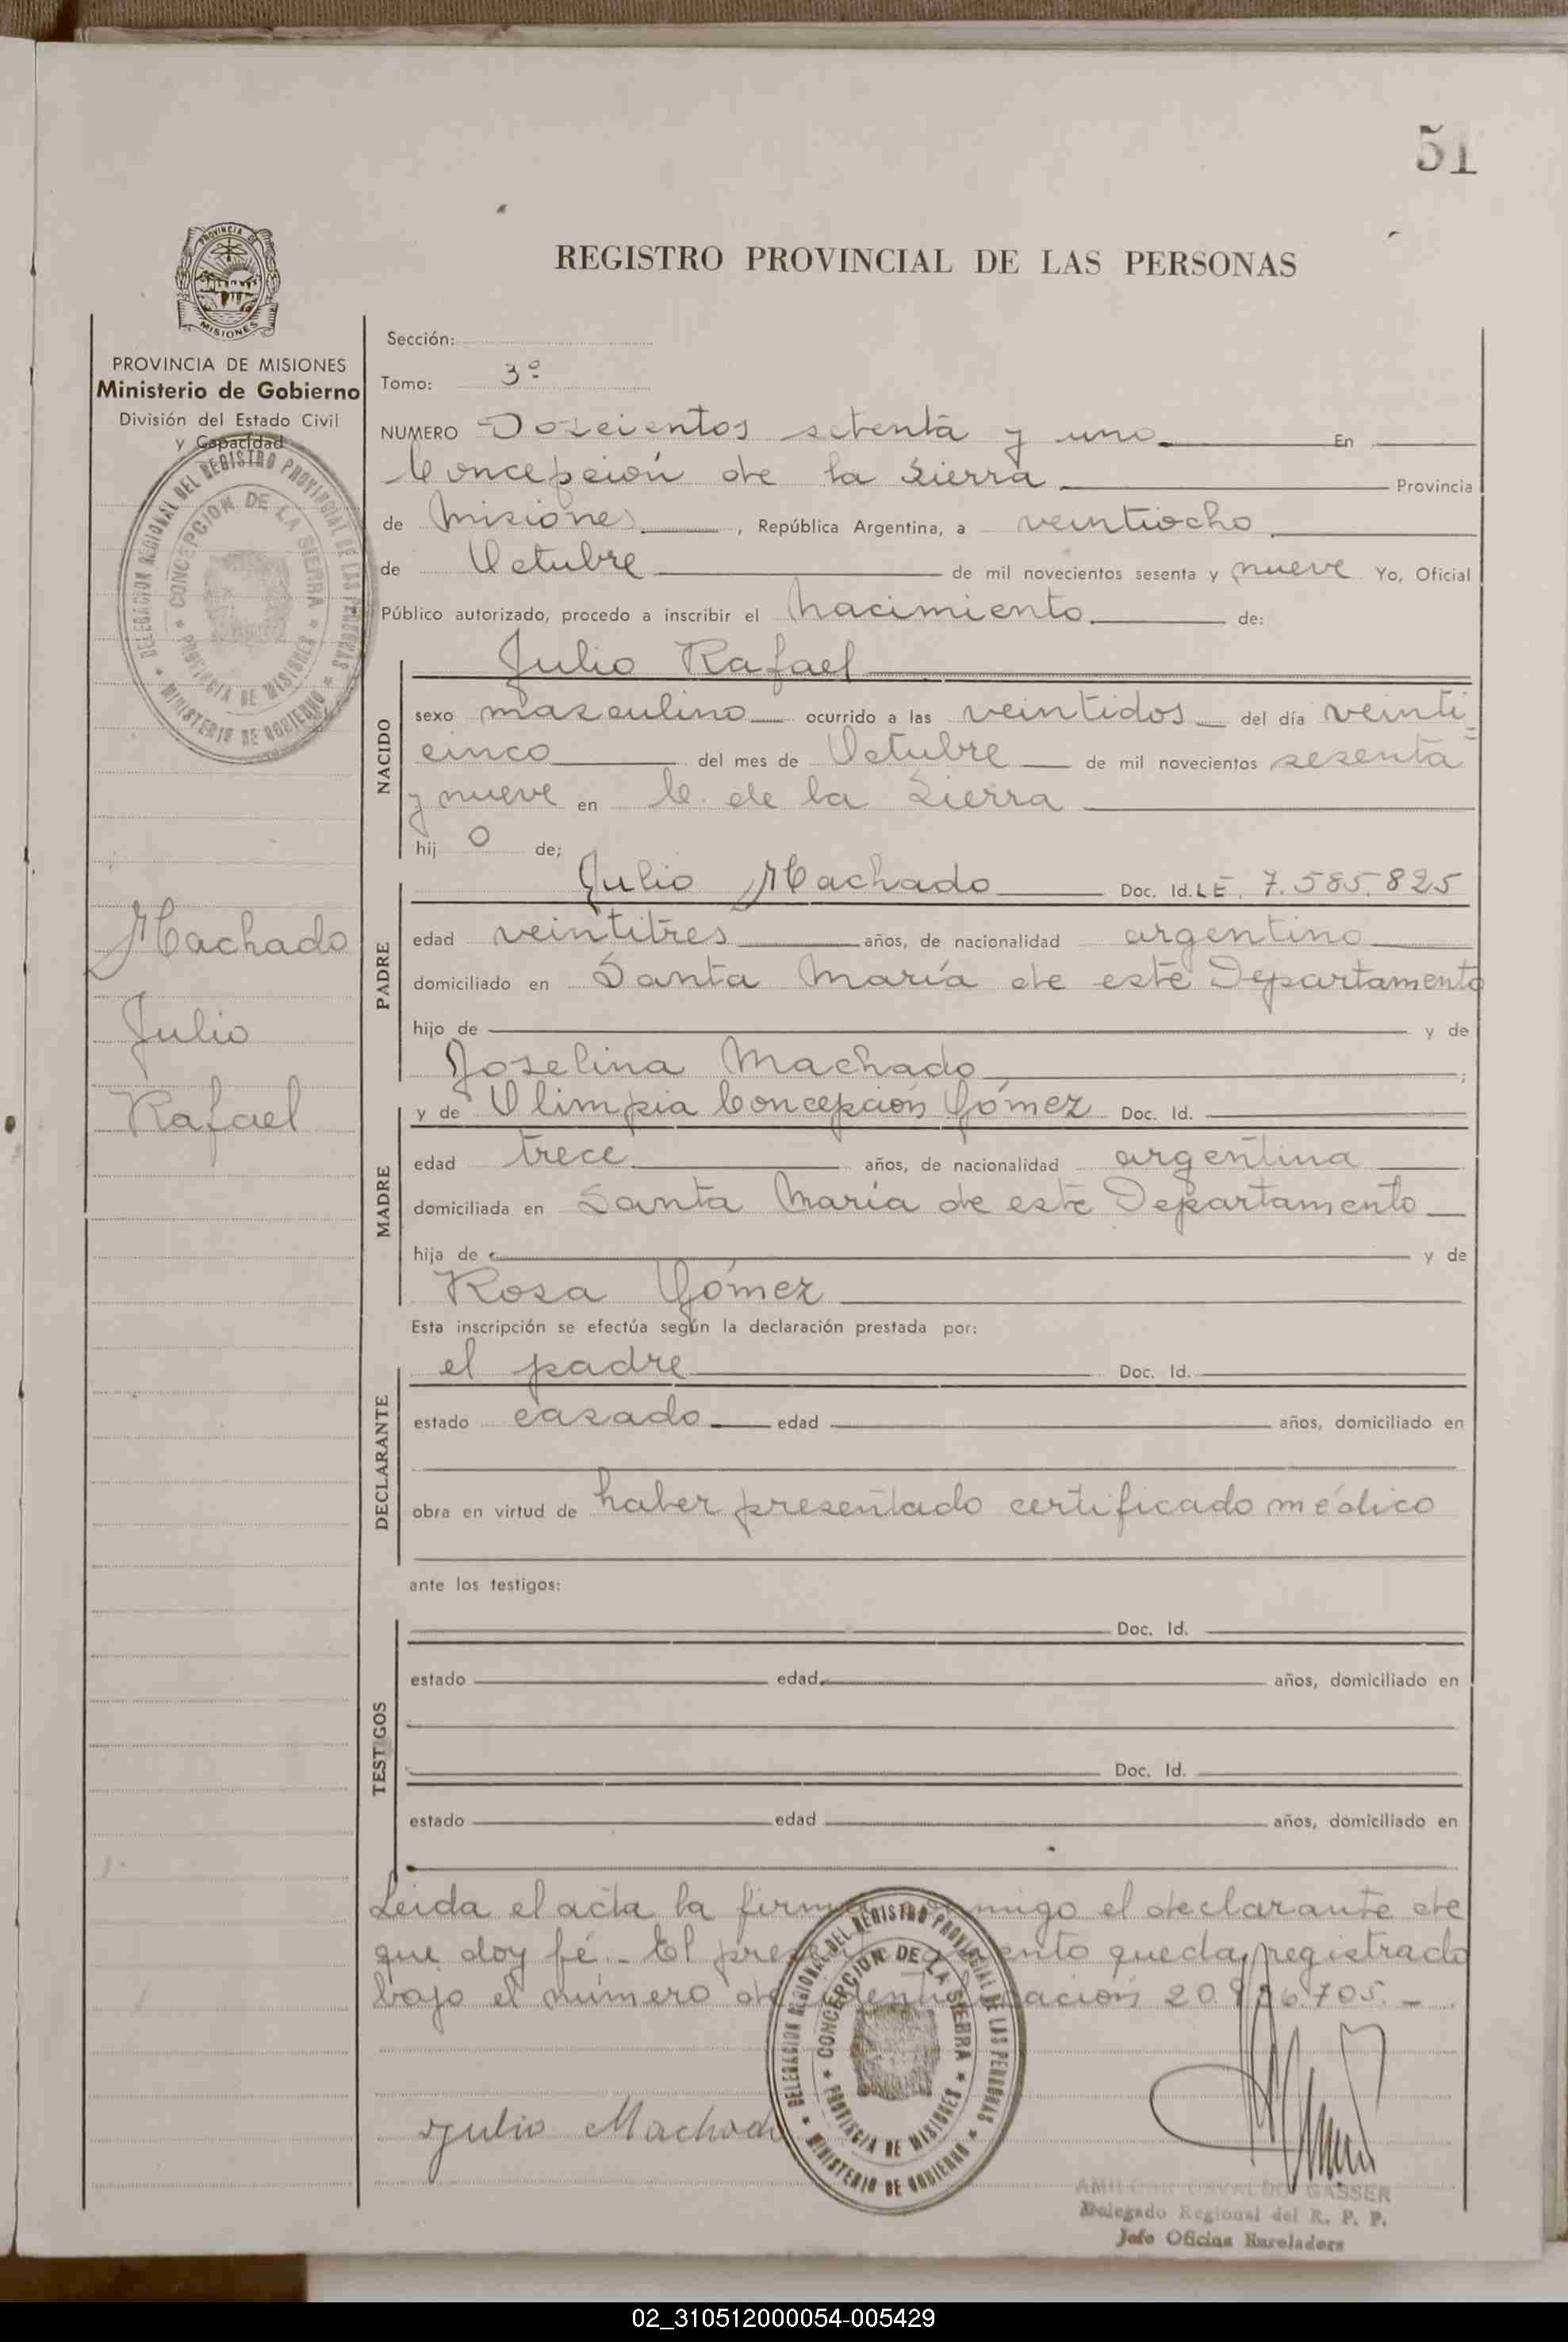 51
REGISTRO PROVINCIAL DE LAS PERSONAS
PROVINCIA DE
MISIONES
PROVINCIA DE MISIONES
Ministerio de Gobierno
División del Estado Civil
y Capacidad
DELEGACION REGIONAL DEL REGISTRO PROVINCIAL DE LAS PERSONAS
CONCEPCION DE LA SIERRA
PROVINCIA DE MISIONES
MINISTERIO DE GOBIERNO
Machado
Julio
Rafael
Sección:
Tomo: 3º
NUMERO Doscientos setenta y uno En
Concepción de la Sierra Provincia
de Misiones, República Argentina, a veintiocho
de Octubre de mil novecientos sesenta y nueve Yo, Oficial
Público autorizado, procedo a inscribir el nacimiento de:
NACIDO
Julio Rafael
sexo masculino ocurrido a las veintidos del día veinti
cinco del mes de Octubre de mil novecientos sesenta
y nueve en C. de la Sierra
hij o de;
PADRE
Julio Machado Doc. Id. LE. 7.585.825
edad veintitres años, de nacionalidad argentino
domiciliado en Santa María de este Departamento
hijo de y de
Joselina Machado ;
MADRE
y de Olimpia Concepción Gómez Doc. Id.
edad trece años, de nacionalidad argentina
domiciliada en Santa María de este Departamento
hija de y de
Rosa Gómez
Esta inscripción se efectúa según la declaración prestada por:
DECLARANTE
el padre Doc. Id.
estado casado edad años, domiciliado en
obra en virtud de haber presentado certificado médico
ante los testigos:
TESTIGOS
Doc. Id.
estado edad años, domiciliado en
Doc. Id.
estado edad años, domiciliado en
Leida el acta la firma conmigo el declarante de
que doy fé.- El presente queda registrado
bajo el número de identificación
DELEGACION REGIONAL DEL REGISTRO PROVINCIAL DE LAS PERSONAS
CONCEPCION DE LA SIERRA
PROVINCIA DE MISIONES
MINISTERIO DE GOBIERNO
Julio Machado
OSVALDO GASSER
Delegado Regional del R. P. P.
Jefe Oficina
02_310512000054-005429